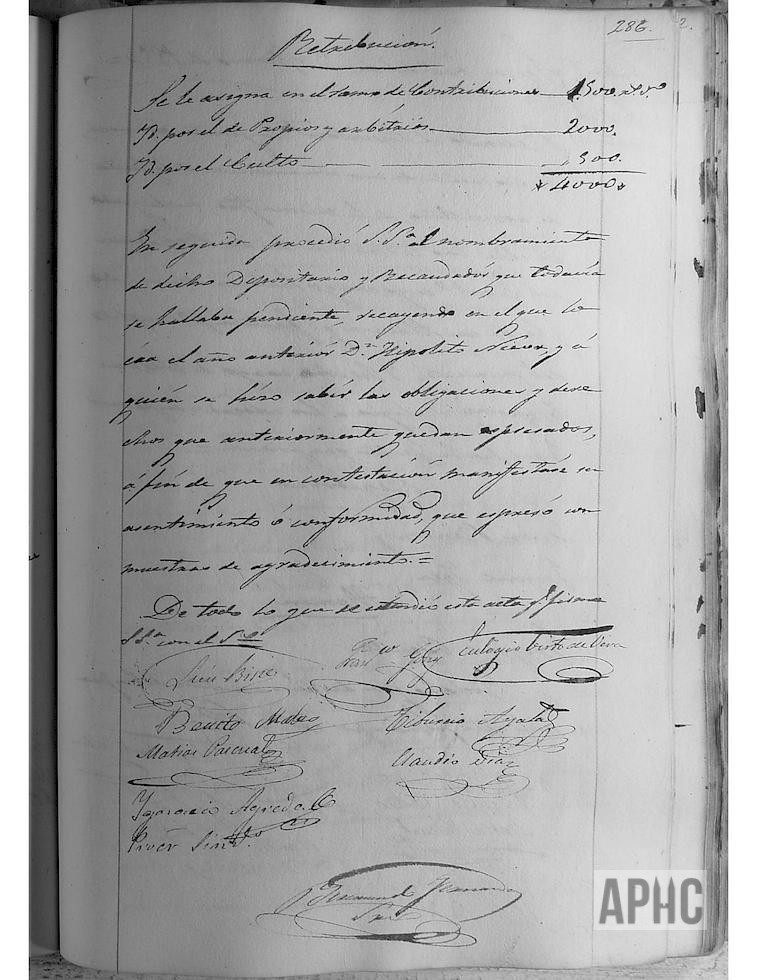 286. 2.
Retribucion.
Se le asigna en el ramo de Contribuciones 1.500 rs. vn.
Yd. por el de Propios y arbitrios 2000.
Yd. por el Culto 500.
4000
En seguida procedió S. Sª. al nombramiento
de dicho Depositario y Recaudador que todavia
se hallaba pendiente, recayendo en el que lo
era el año anterior Dn. Hipolito Nieva, y á
quien se hizo saber las obligaciones y dere
chos que anteriormente quedan espresados,
á fin de que en contestacion manifestáse su
asentimiento ó conformidad, que espresó con
muestras de agradecimiento.=
De todo lo que se estendió esta acta q. firma
S Sª. con el
Franco. Eulogio de
Benito Mateo Tiburcio Ayala
Matias Pascual Claudio Diaz
Ygnacio Agreda
Procr. Sindco.
Raimundo
Srio
APHC